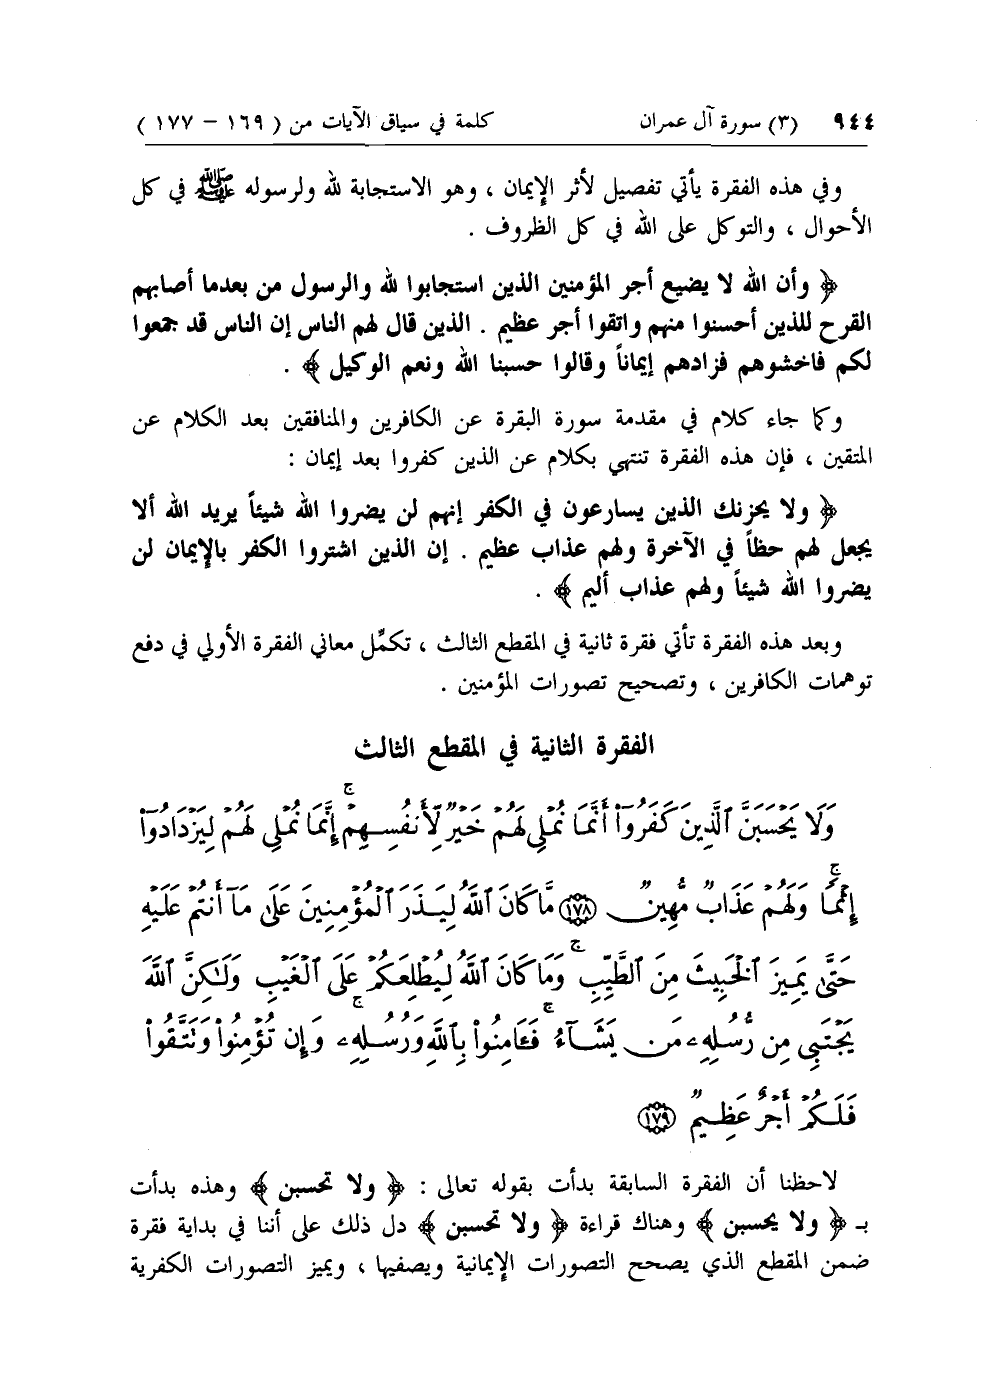 ٩٤٤ (٣) سورة آل عمران كلمة في سياق الآيات من ( ١٦٩ – ١٧٧ )
وفي هذه الفقرة يأتي تفصيل لأثر الإيمان ، وهو الاستجابة لله ولرسوله ﷺ في كل
الأحوال ، والتوكل على الله في كل الظروف .
﴿ وأن الله لا يضيع أجر المؤمنين الذين استجابوا لله والرسول من بعدما أصابهم
القرح للذين أحسنوا منهم واتقوا أجر عظيم . الذين قال لهم الناس إن الناس قد جمعوا
لكم فاخشوهم فزادهم إيماناً وقالوا حسبنا الله ونعم الوكيل ﴾ .
وكما جاء كلام في مقدمة سورة البقرة عن الكافرين والمنافقين بعد الكلام عن
المتقين ، فإن هذه الفقرة تنتهي بكلام عن الذين كفروا بعد إيمان :
﴿ ولا يحزنك الذين يسارعون في الكفر إنهم لن يضروا الله شيئاً يريد الله ألا
يجعل لهم حظاً في الآخرة ولهم عذاب عظيم . إن الذين اشتروا الكفر بالإيمان لن
يضروا الله شيئاً ولهم عذاب أليم ﴾ .
وبعد هذه الفقرة تأتي فقرة ثانية في المقطع الثالث ، تكمِّل معاني الفقرة الأولي في دفع
توهمات الكافرين ، وتصحيح تصورات المؤمنين .
الفقرة الثانية في المقطع الثالث
وَلَا يَحْسَبَنَّ ٱلَّذِينَ كَفَرُوٓا۟ أَنَّمَا نُمْلِى لَهُمْ خَيْرٌ لِّأَنفُسِهِمْ ۚ إِنَّمَا نُمْلِى لَهُمْ لِيَزْدَادُوٓا۟
إِثْمًا ۚ وَلَهُمْ عَذَابٌ مُّهِينٌ ﴿١٧٨﴾ مَّا كَانَ ٱللَّهُ لِيَذَرَ ٱلْمُؤْمِنِينَ عَلَىٰ مَآ أَنتُمْ عَلَيْهِ
حَتَّىٰ يَمِيزَ ٱلْخَبِيثَ مِنَ ٱلطَّيِّبِ ۗ وَمَا كَانَ ٱللَّهُ لِيُطْلِعَكُمْ عَلَى ٱلْغَيْبِ وَلَٰكِنَّ ٱللَّهَ
يَجْتَبِى مِن رُّسُلِهِۦ مَن يَشَآءُ ۖ فَـَٔامِنُوا۟ بِٱللَّهِ وَرُسُلِهِۦ ۚ وَإِن تُؤْمِنُوا۟ وَتَتَّقُوا۟
فَلَكُمْ أَجْرٌ عَظِيمٌ ﴿١٧٩﴾
لاحظنا أن الفقرة السابقة بدأت بقوله تعالى : ﴿ ولا تحسبن ﴾ وهذه بدأت
بـ ﴿ ولا يحسبن ﴾ وهناك قراءة ﴿ ولا تحسبن ﴾ دل ذلك على أننا في بداية فقرة
ضمن المقطع الذي يصحح التصورات الإيمانية ويصفيها ، ويميز التصورات الكفرية